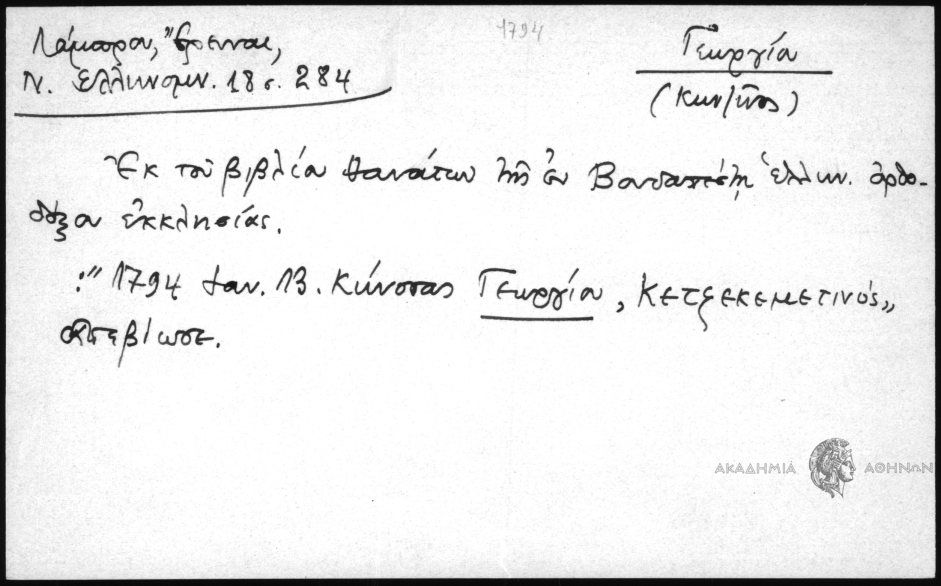 Λάμπρου, Ἔρευναι,
Ν. Ἑλληνομν. 18 σ. 284
1794
Γεωργίου
(Κων/ῖνος)
Ἐκ τοῦ βιβλίου θανάτων τῆς ἐν Βουδαπέστῃ ἑλλην. ὀρθο-
δόξου ἐκκλησίας.
:"1794 Ἰαν. 13. Κώνστας Γεωργίου, Κετζεκεμετινός,,
ἀπεβίωσε.
ΑΚΑΔΗΜΙΑ ΑΘΗΝΩΝ